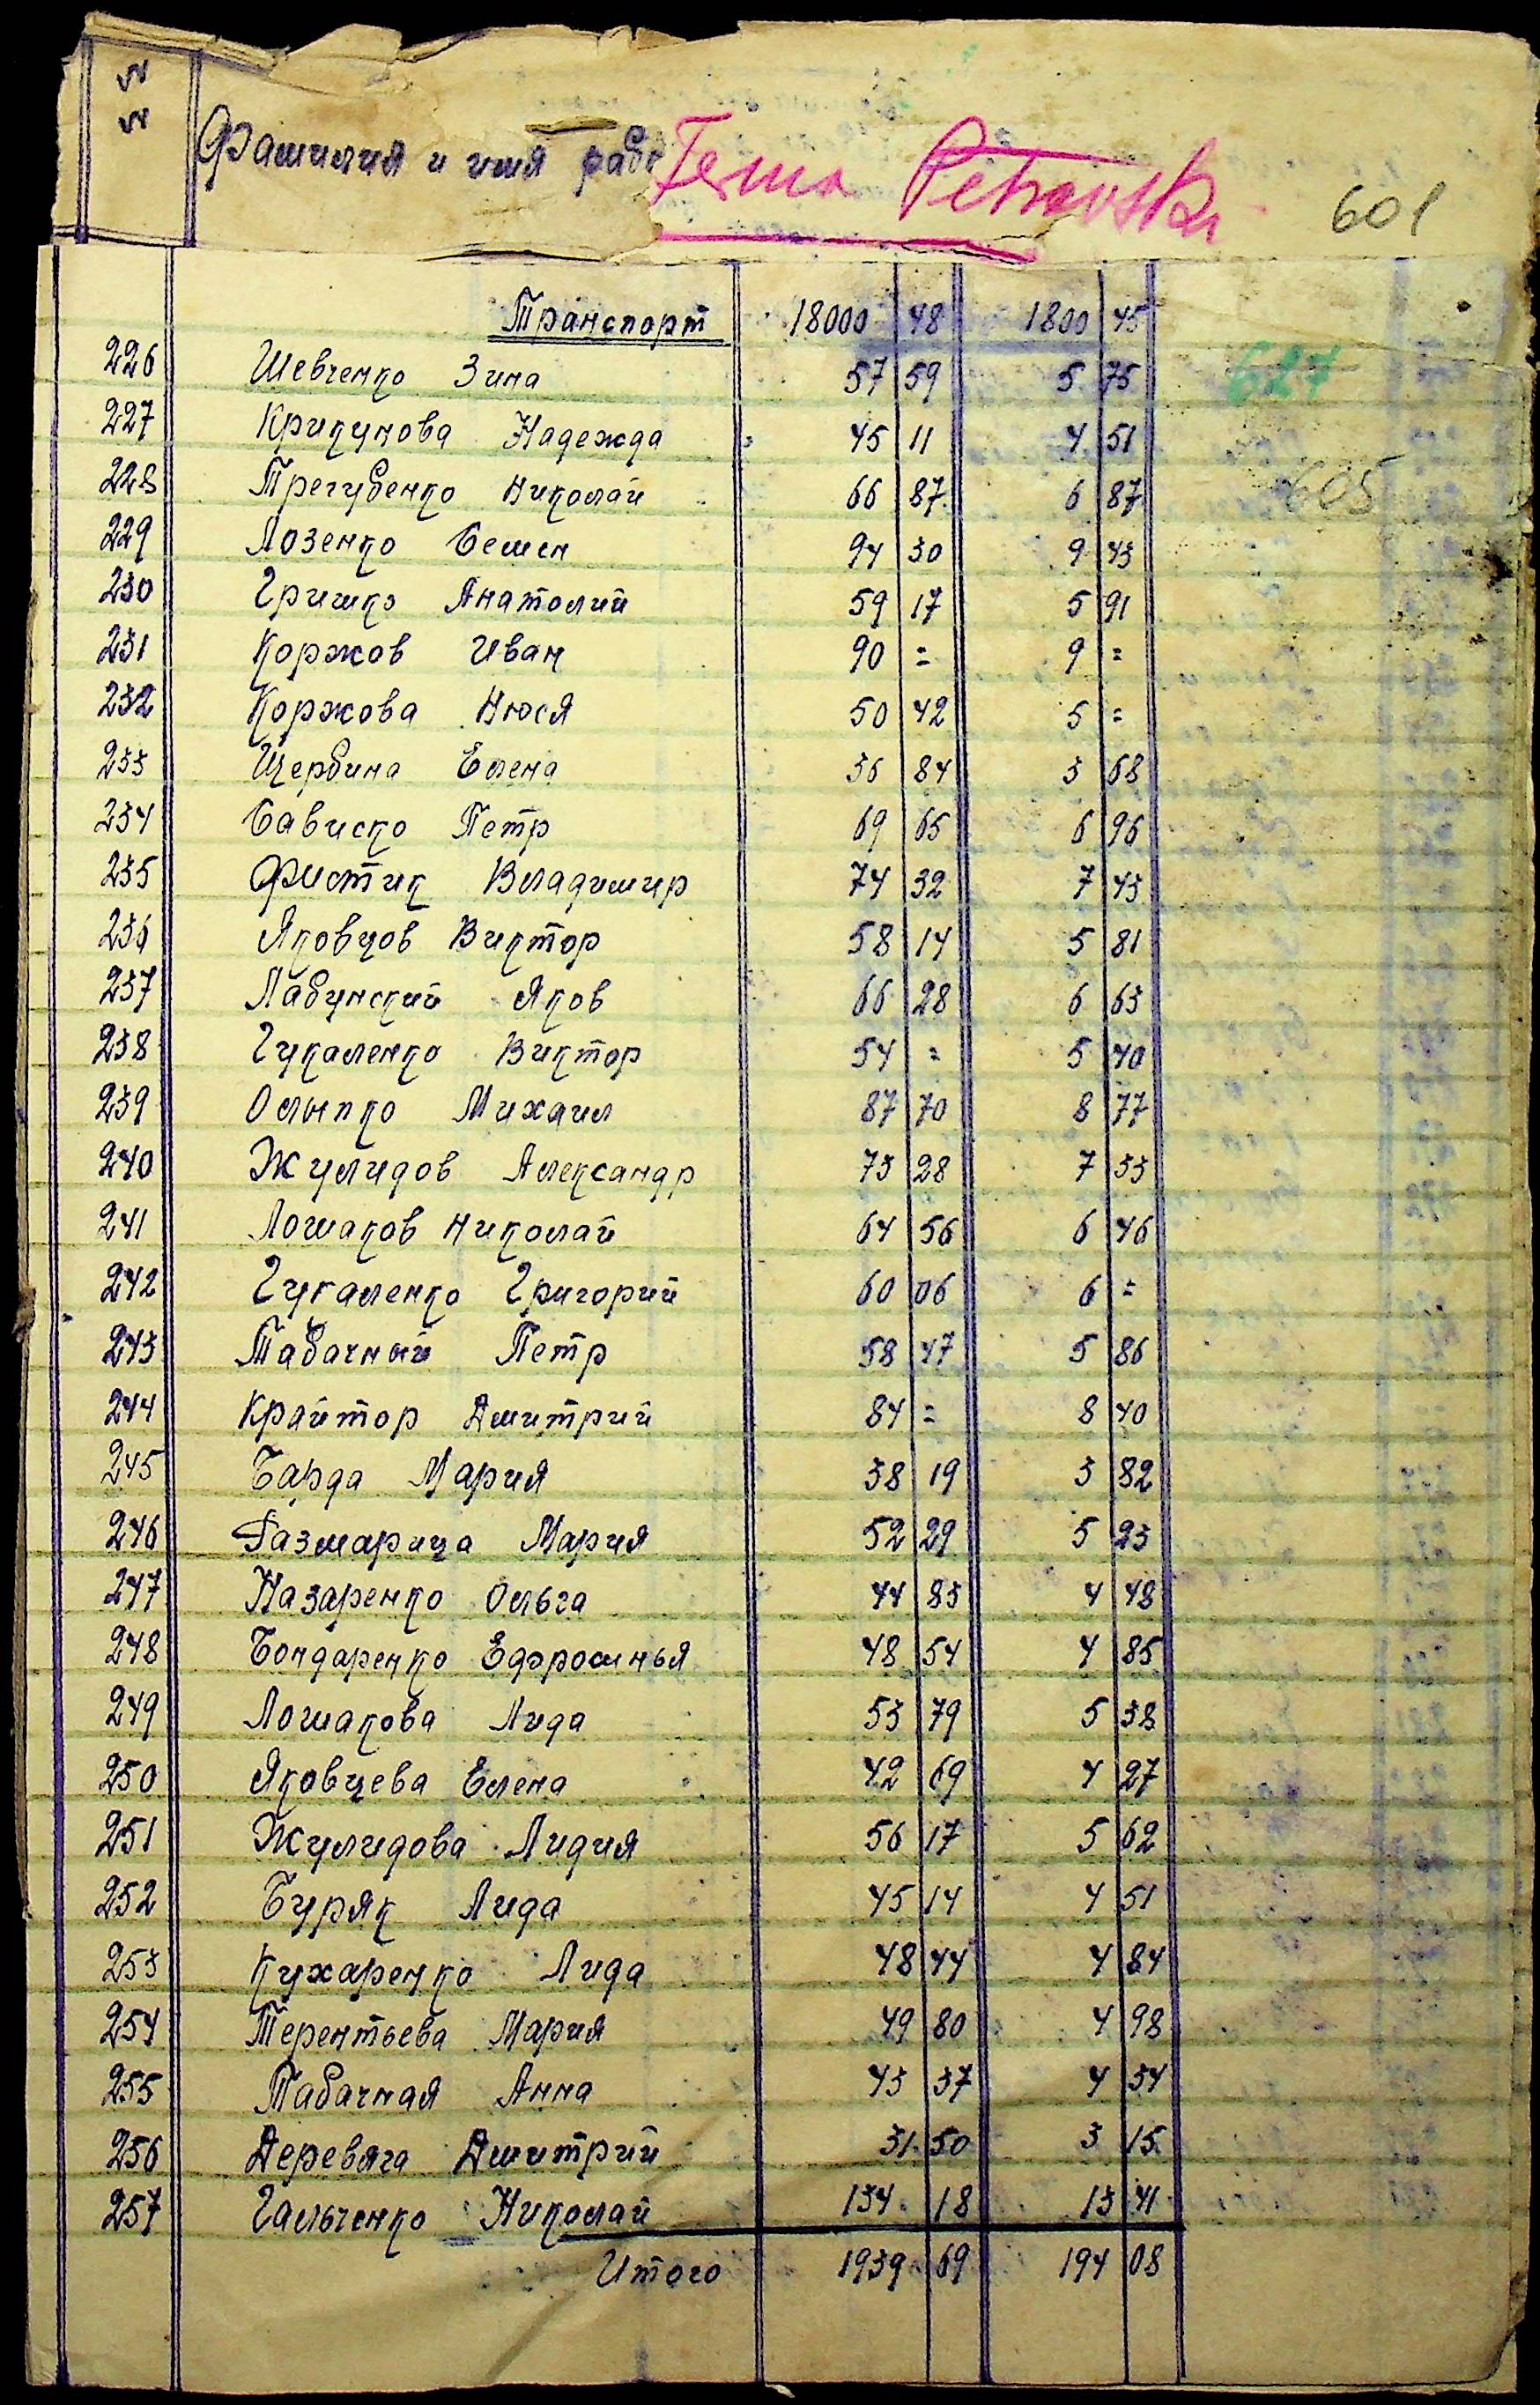 № №
Фамилия и имя рабо Ferma Petrovski 601
Транспорт 18000 48 1800 45
226 Шевченко Зина 57 59 5 75
627
227 Крикунова Надежда 45 11 4 51
228 Трегубенко Николай 66 87 6 87
605
229 Лозенко Семен 94 30 9 43
230 Гришко Анатолий 59 17 5 91
231 Коржов Иван 90 = 9 =
232 Коржова Нюся 50 42 5 =
233 Щербина Елена 36 84 3 68
234 Сависко Петр 69 65 6 96
235 Фистик Владимир 74 32 7 43
236 Яковцов Виктор 58 14 5 81
237 Лабунский Яков 66 28 6 63
238 Гукаленко Виктор 54 = 5 40
239 Олыпко Михаил 87 70 8 77
240 Жулидов Александр 73 28 7 33
241 Лошаков Николай 64 56 6 46
242 Гукаленко Григорий 60 06 6 =
243 Табачный Петр 58 47 5 86
244 Крайтор Дмитрий 84 = 8 40
245 Барда Мария 38 19 3 82
246 Газмарица Мария 52 29 5 23
247 Назаренко Ольга 44 83 4 48
248 Бондаренко Ефросинья 48 54 4 85
249 Лошакова Лида 53 79 5 38
250 Яковцева Елена 42 69 4 27
251 Жулидова Лидия 56 17 5 62
252 Буряк Лида 45 14 4 51
253 Кухаренко Лида 48 44 4 84
254 Терентьева Мария 49 80 4 98
255 Табачная Анна 43 37 4 34
256 Деревяга Дмитрий 31 50 3 15
257 Гальченко Николай 134 18 13 41
Итого 1939 69 194 08